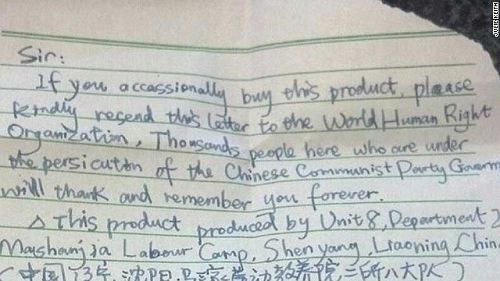 Sir:
If you accassionally buy this product, please
kindly resend this letter to the World Human Right
Organization, Thousands people here who are under
the persicution of the Chinese Communist Party Governm
will thank and remember you forever.
△ This product produced by Unit 8, Department 2
Mashanjia Labour Camp, Shenyang, Liaoning, Chin
(中国 辽宁, 沈阳, 马家劳动教养院, 二所八大队)
JULIE KEITH